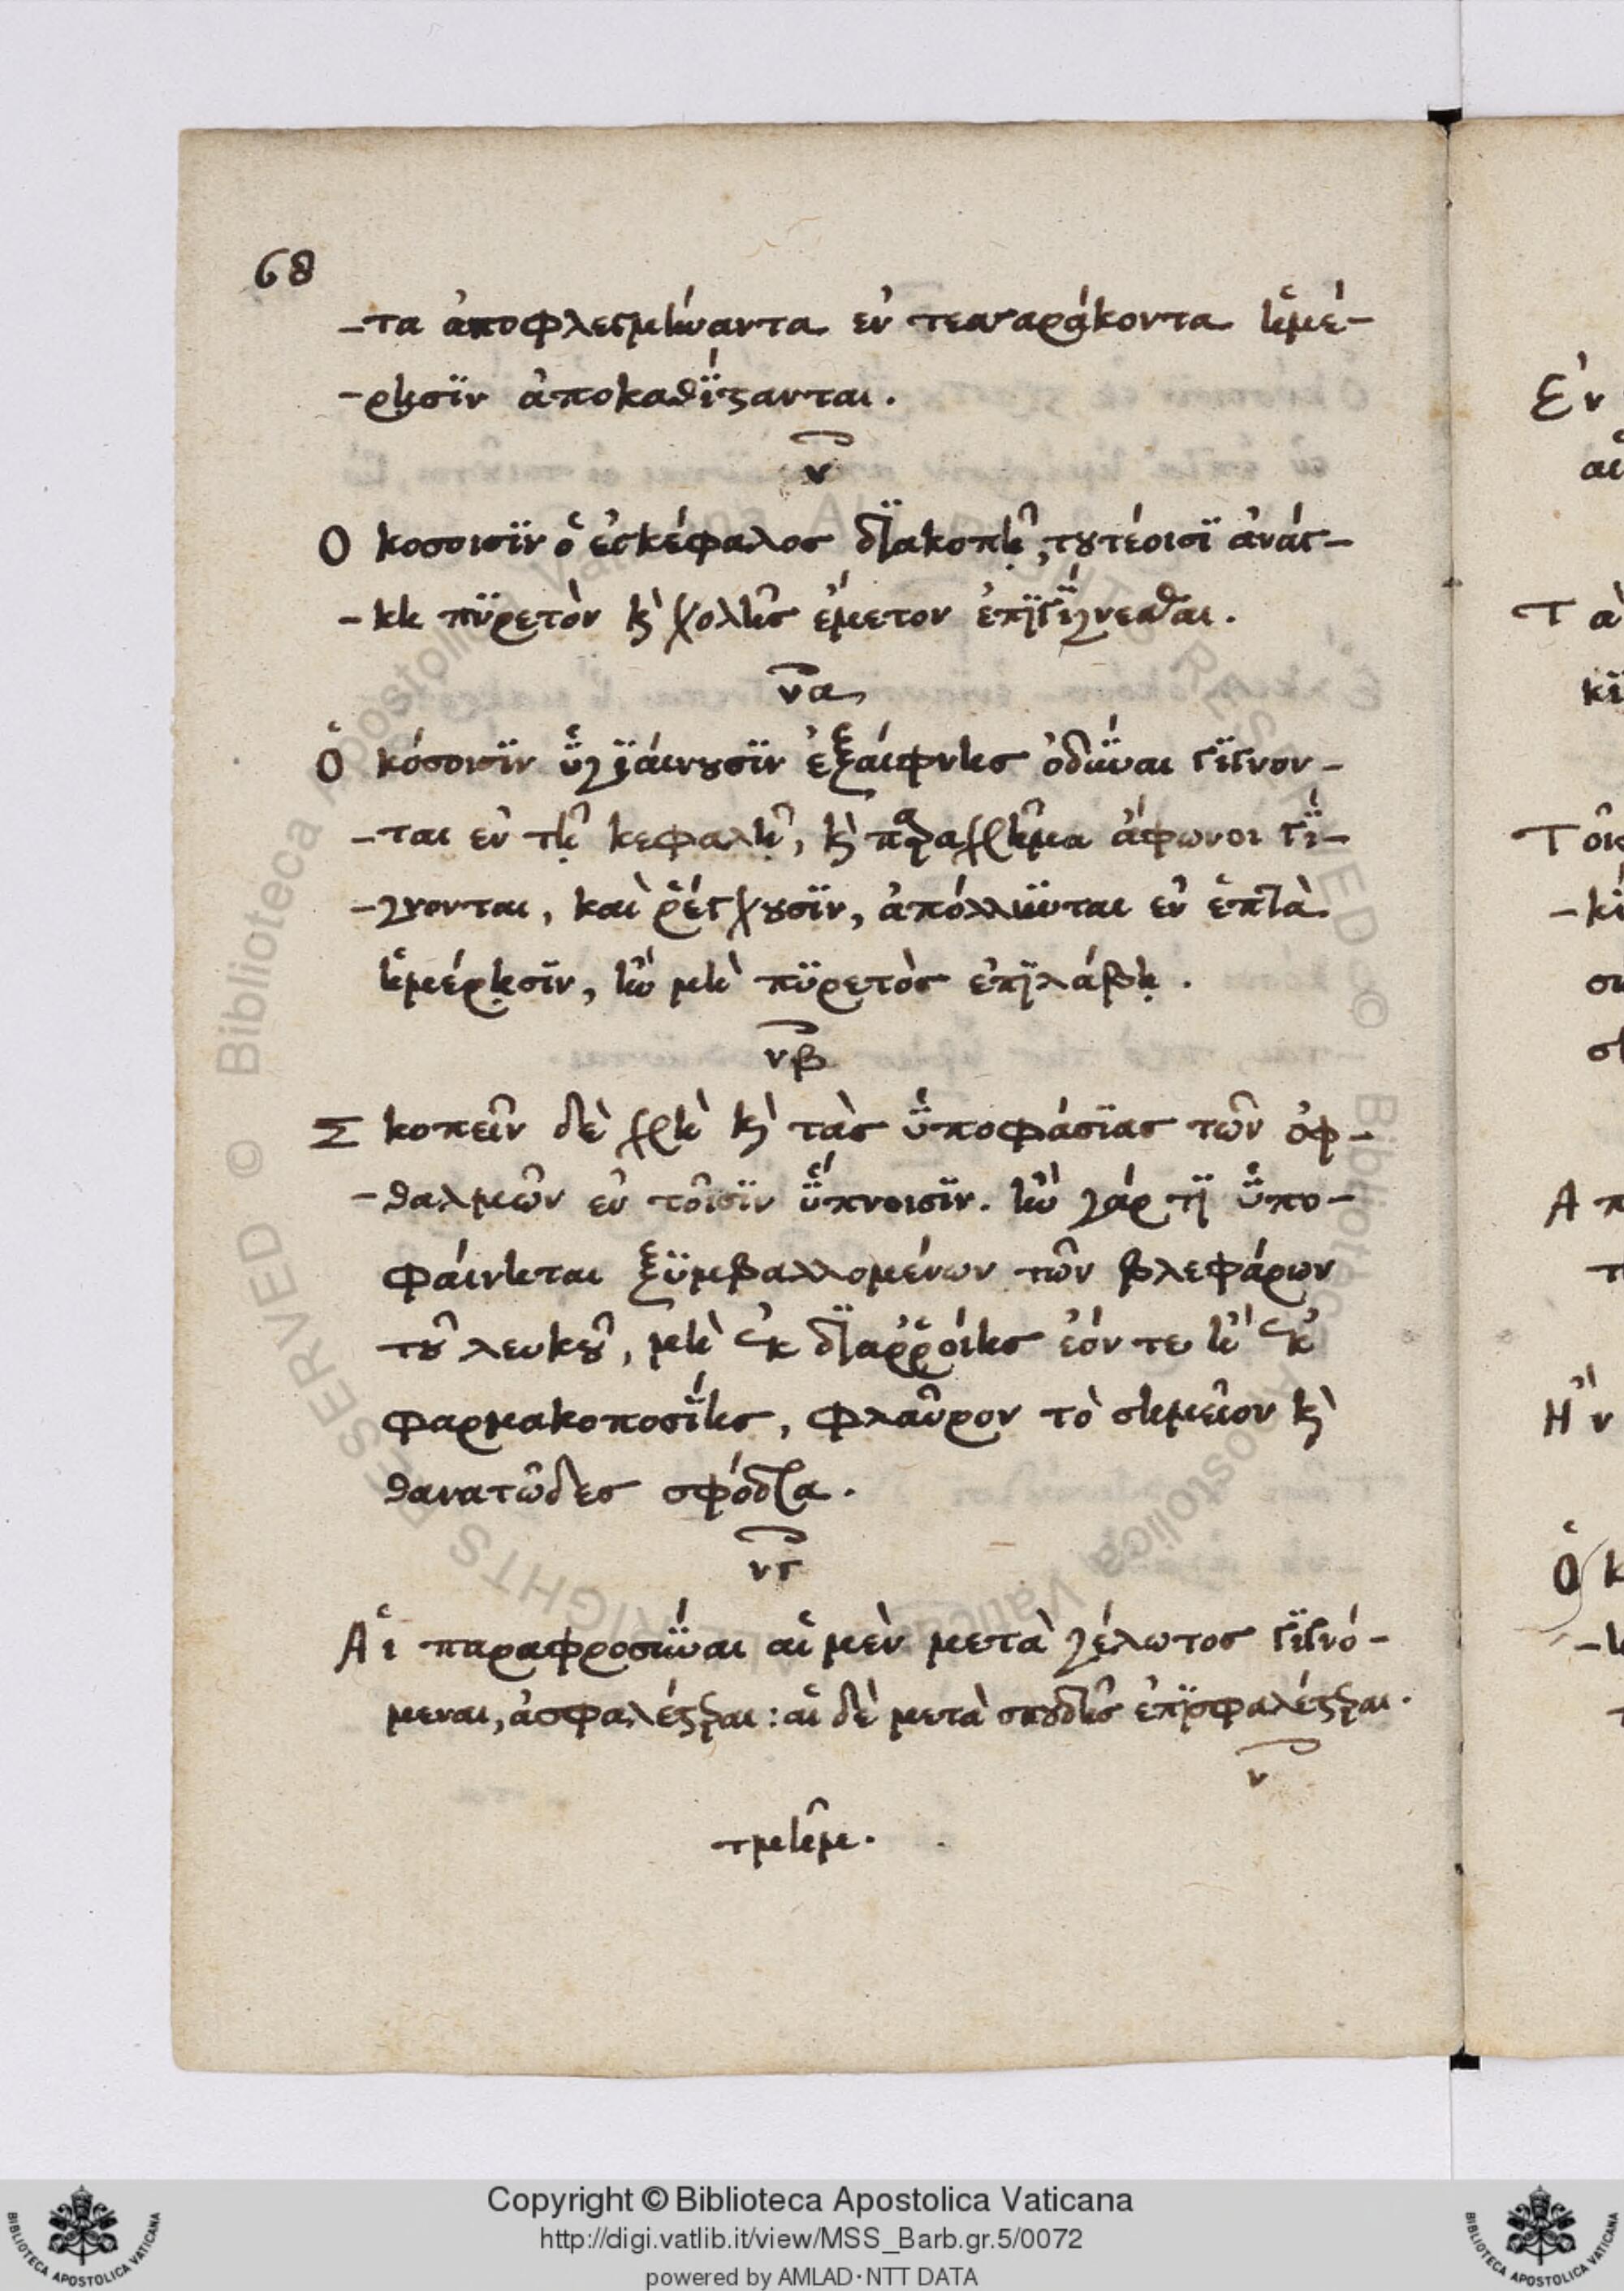 68
-τα ἀποφλεγμήναντα ἐν τεσσαράκοντα ἡμέ-
-ρῃσϊν ἀποκαθΐστανται.
ν
Ο κοσοισϊν ὁ ἐγκέφαλος δϊακοπῇ, τουτέοισϊ ἀνάγ-
-κη πϋρετὸν κὶ χολῆς ἔμετον ἐπϊγΐγνεσθαι.
να
Ὁ κόσοισϊν ὑγϊάινουσϊν ἐξάιφνης ὀδύναι γϊγνον-
-ται ἐν τῇ κεφαλῇ, κὶ παραχρῆμα ἄφωνοι γΐ-
-γνονται, καὶ ῥέγχουσϊν, ἀπόλλυνται ἐν ἑπτὰ
ἡμέρῃσϊν, ἢν μὴ πϋρετὸς ἐπϊλάβῃ.
νβ
Σ κοπεῖν δὲ χρὴ κὶ τὰς ὑποφάσϊας τῶν ὀφ-
-θαλμῶν ἐν τοῖσϊν ὕπνοισϊν. ἢν γάρ τϊ ὑπο-
φάινηται ξϋμβαλλομένων τῶν βλεφάρων
τοῦ λευκοῦ, μὴ ἐκ δϊαῤῥόιης ἐόντι ἢ ἐκ
φαρμακοποσΐης, φλαῦρον τὸ σημεῖον κὶ
θανατῶδες σφόδρα.
νγ
Αἱ παραφροσύναι αἱ μὲν μετὰ γέλωτος γϊγνό-
μεναι, ἀσφαλέστεραι: αἱ δὲ μετὰ σπουδῆς ἐπϊσφαλέστεραι.
ν
τμῆμ.
Copyright © Biblioteca Apostolica Vaticana
http://digi.vatlib.it/view/MSS_Barb.gr.5/0072
powered by AMLAD·NTT DATA